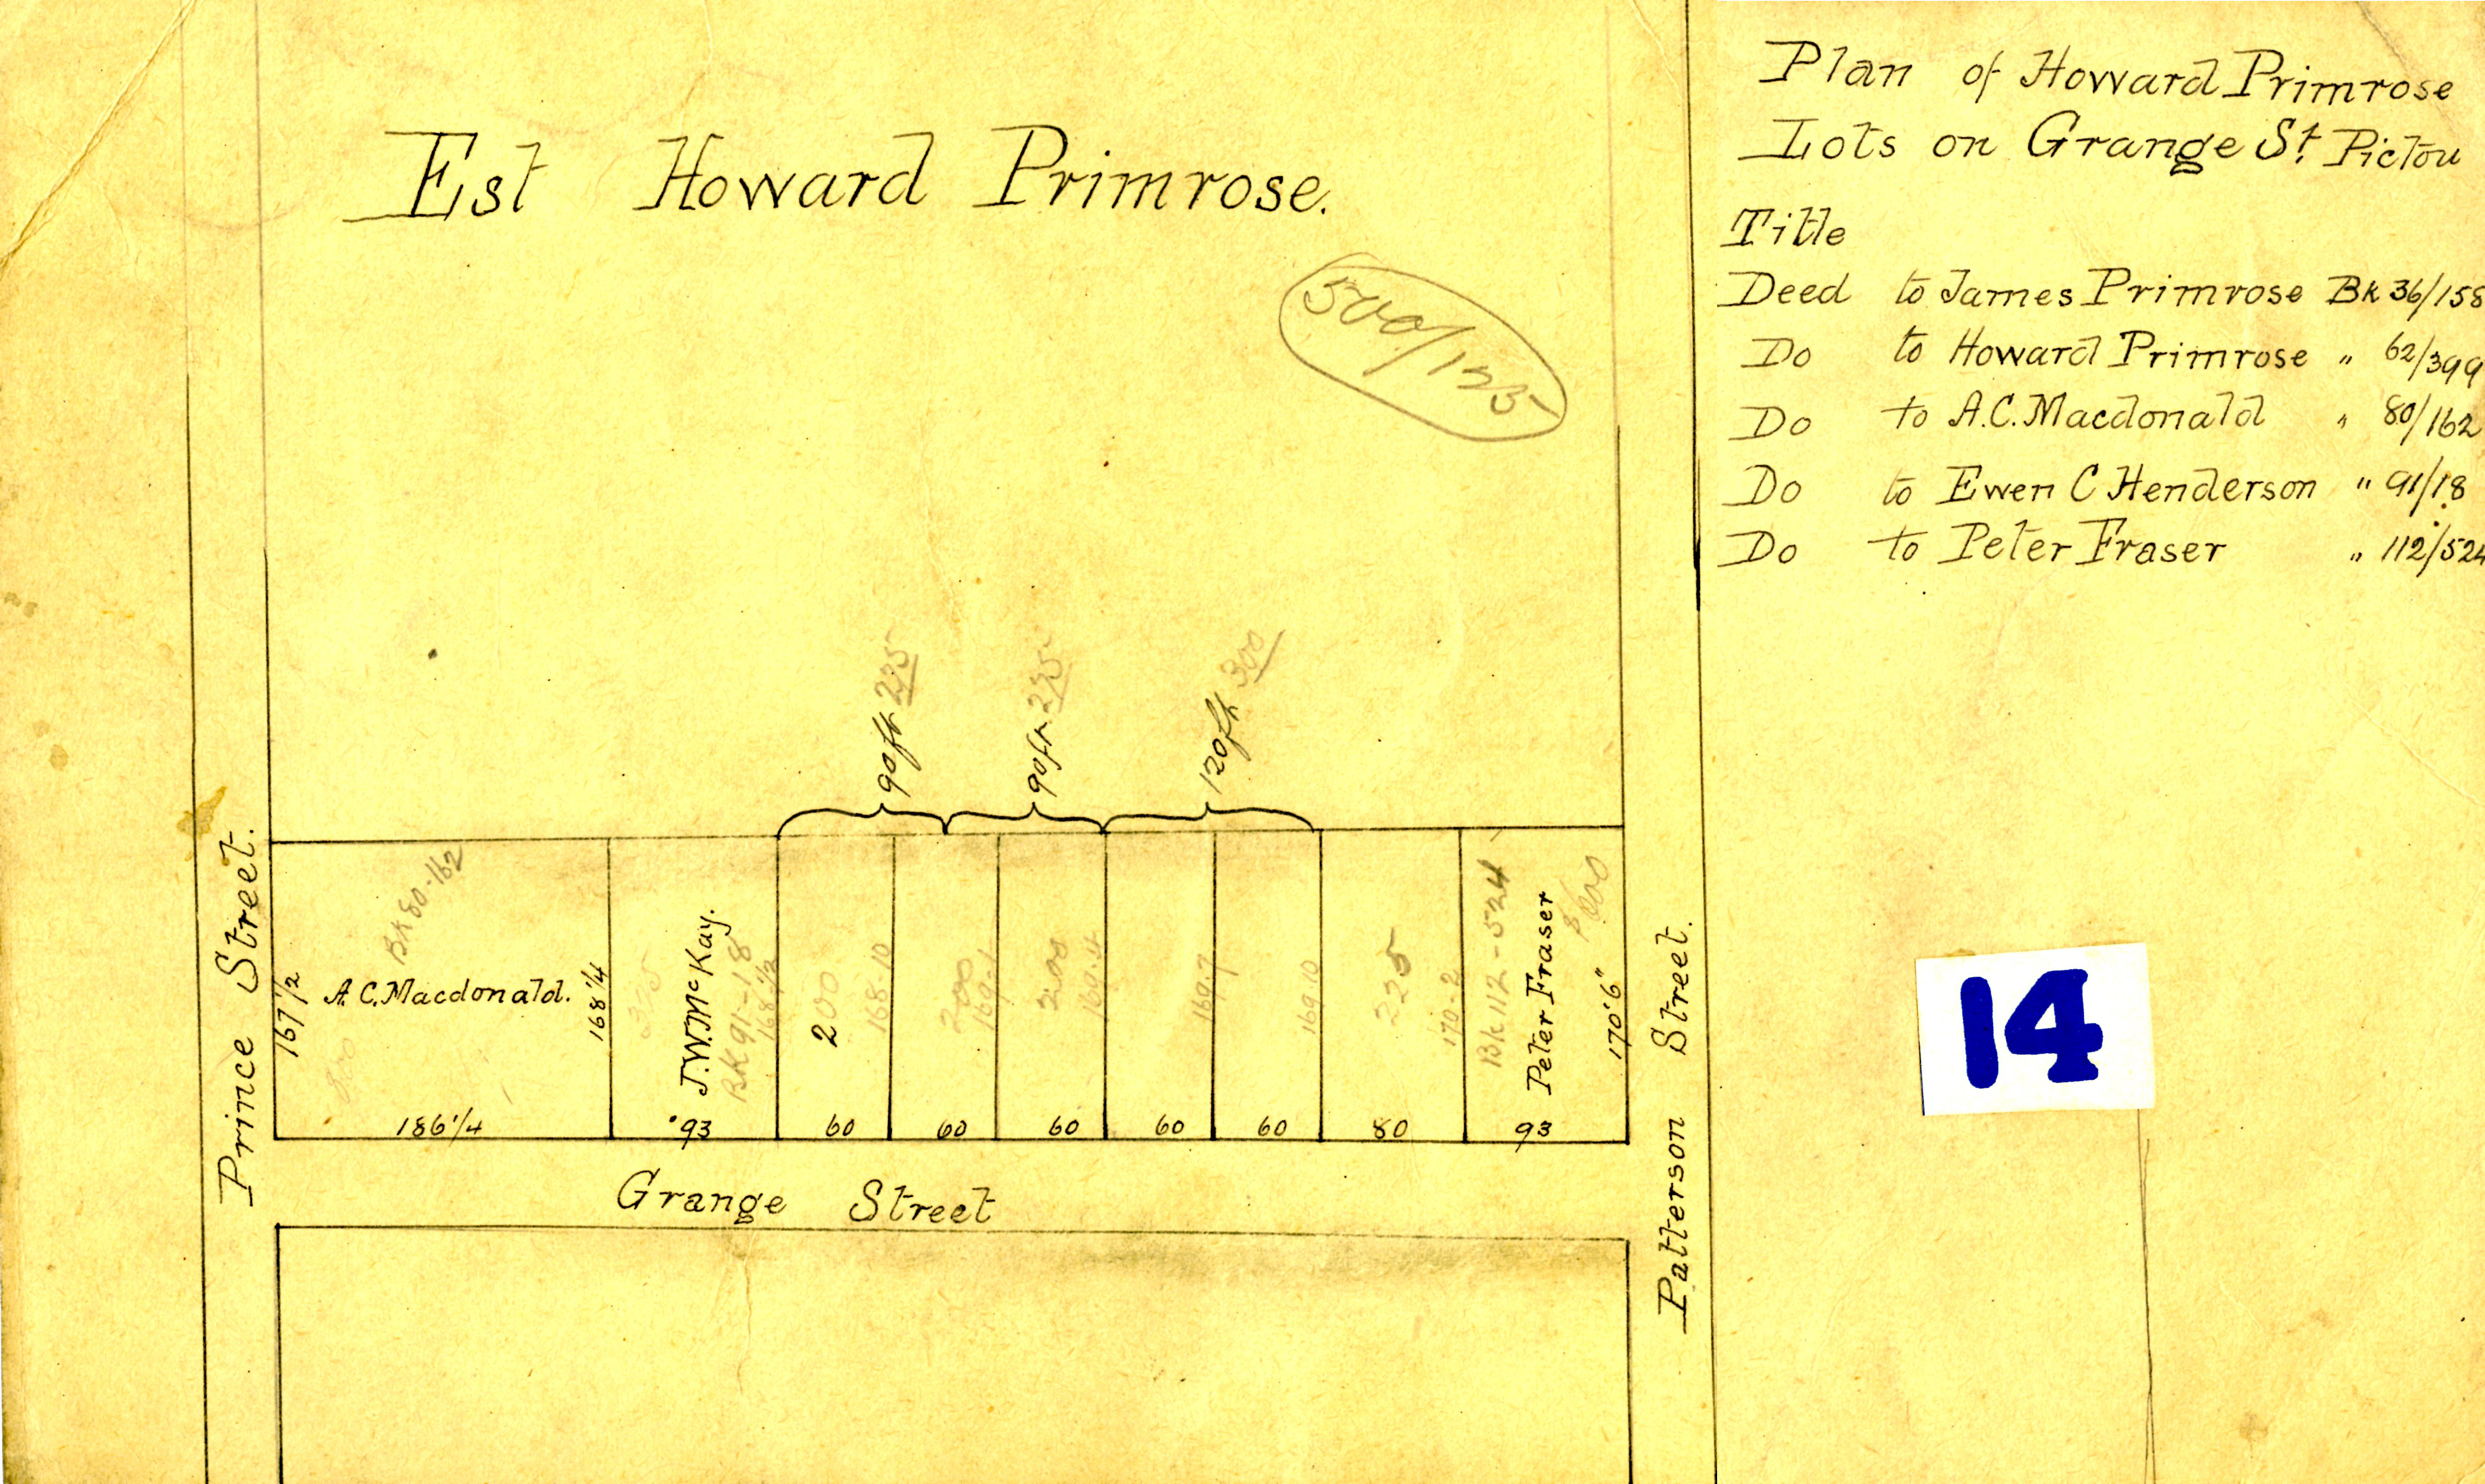 Plan of Howard Primrose
Lots on Grange St. Pictou
Title
Deed to James Primrose Bk 36/158
Do to Howard Primrose " 62/399
Do to A.C. Macdonald " 80/162
Do to Ewen C Henderson " 91/18
Do to Peter Fraser " 112/524
Est Howard Primrose.
500/125
90ft 225
90ft 225
120ft 300
Prince Street.
167 1/2
Bk 80-162
A.C. Macdonald.
168 1/4
186 1/4
J.W. McKay.
BK 91-18
168 1/2
93
200
168-10
60
200
169-1
60
200
169-4
60
169-7
60
169-10
60
225
170-2
80
Bk 112-524
Peter Fraser
170'6"
93
Grange Street
Patterson Street.
14